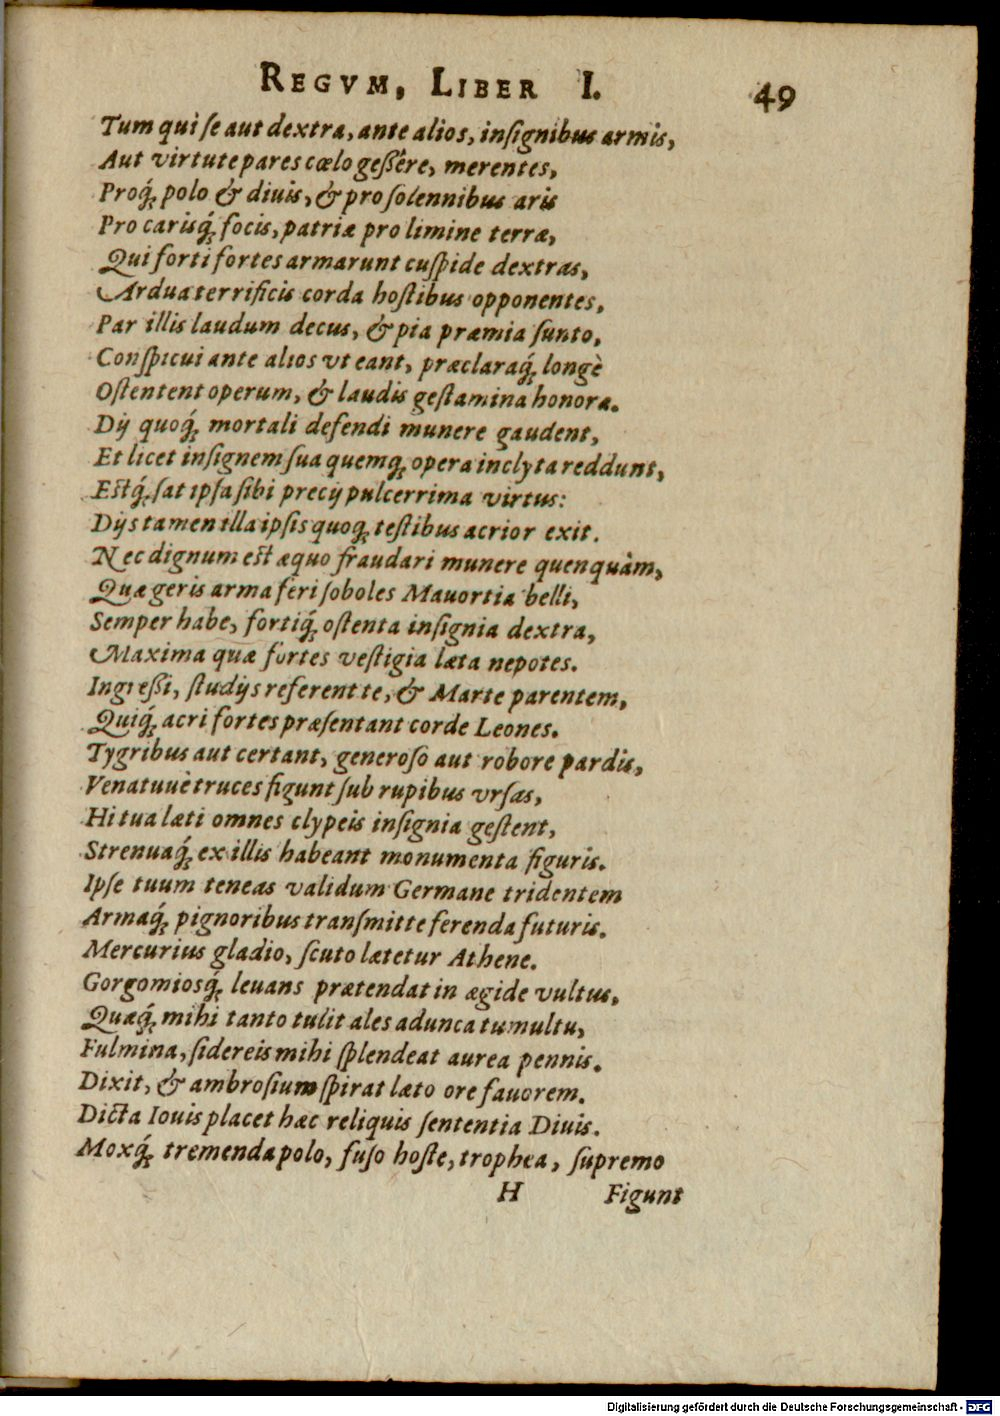 REGVM, LIBER I. 49
Tum qui ſe aut dextra, ante alios, inſignibus armis,
Aut virtute pares cœlo geßêre, merentes,
Proq́; polo & diuis, & pro ſolennibus aris
Pro carisq́; focis, patriæ pro limine terræ,
Qui forti fortes armarunt cuſpide dextras,
Ardua terrificis corda hoſtibus opponentes,
Par illis laudum decus, & pia præmia ſunto,
Conſpicui ante alios vt eant, præclaraq́; longè
Oſtentent operum, & laudis geſtamina honora.
Dÿ quoq́; mortali defendi munere gaudent,
Et licet inſignem ſua quemq; opera inclyta reddunt,
Eſtq́; ſat ipſa ſibi precÿ pulcerrima virtus:
Dÿs tamen illa ipſis quoq; teſtibus acrior exit.
Nec dignum eſt æquo fraudari munere quenquàm,
Quæ geris arma feri ſoboles Mauortia belli,
Semper habe, fortiq́; oſtenta inſignia dextra,
Maxima quæ fortes veſtigia læta nepotes.
Ingreßi, ſtudÿs referent te, & Marte parentem,
Quiq́; acri fortes præſentant corde Leones.
Tygribus aut certant, generoſo aut robore pardis,
Venatuuè truces figunt ſub rupibus vrſas,
Hi tua læti omnes clypeis inſignia geſtent,
Strenuaq́; ex illis habeant monumenta figuris.
Ipſe tuum teneas validum Germane tridentem
Armaq́; pignoribus tranſmitte ferenda futuris.
Mercurius gladio, ſcuto lætetur Athene.
Gorgomiosq́; leuans prætendat in ægide vultus,
Quæq́; mihi tanto tulit ales adunca tumultu,
Fulmina, ſidereis mihi ſplendeat aurea pennis.
Dixit, & ambroſium ſpirat læto ore fauorem.
Dicta Iouis placet hæc reliquis ſententia Diuis.
Moxq́; tremenda polo, fuſo hoſte, trophea, ſupremo
H Figunt
Digitalisierung gefördert durch die Deutsche Forschungsgemeinschaft - DFG